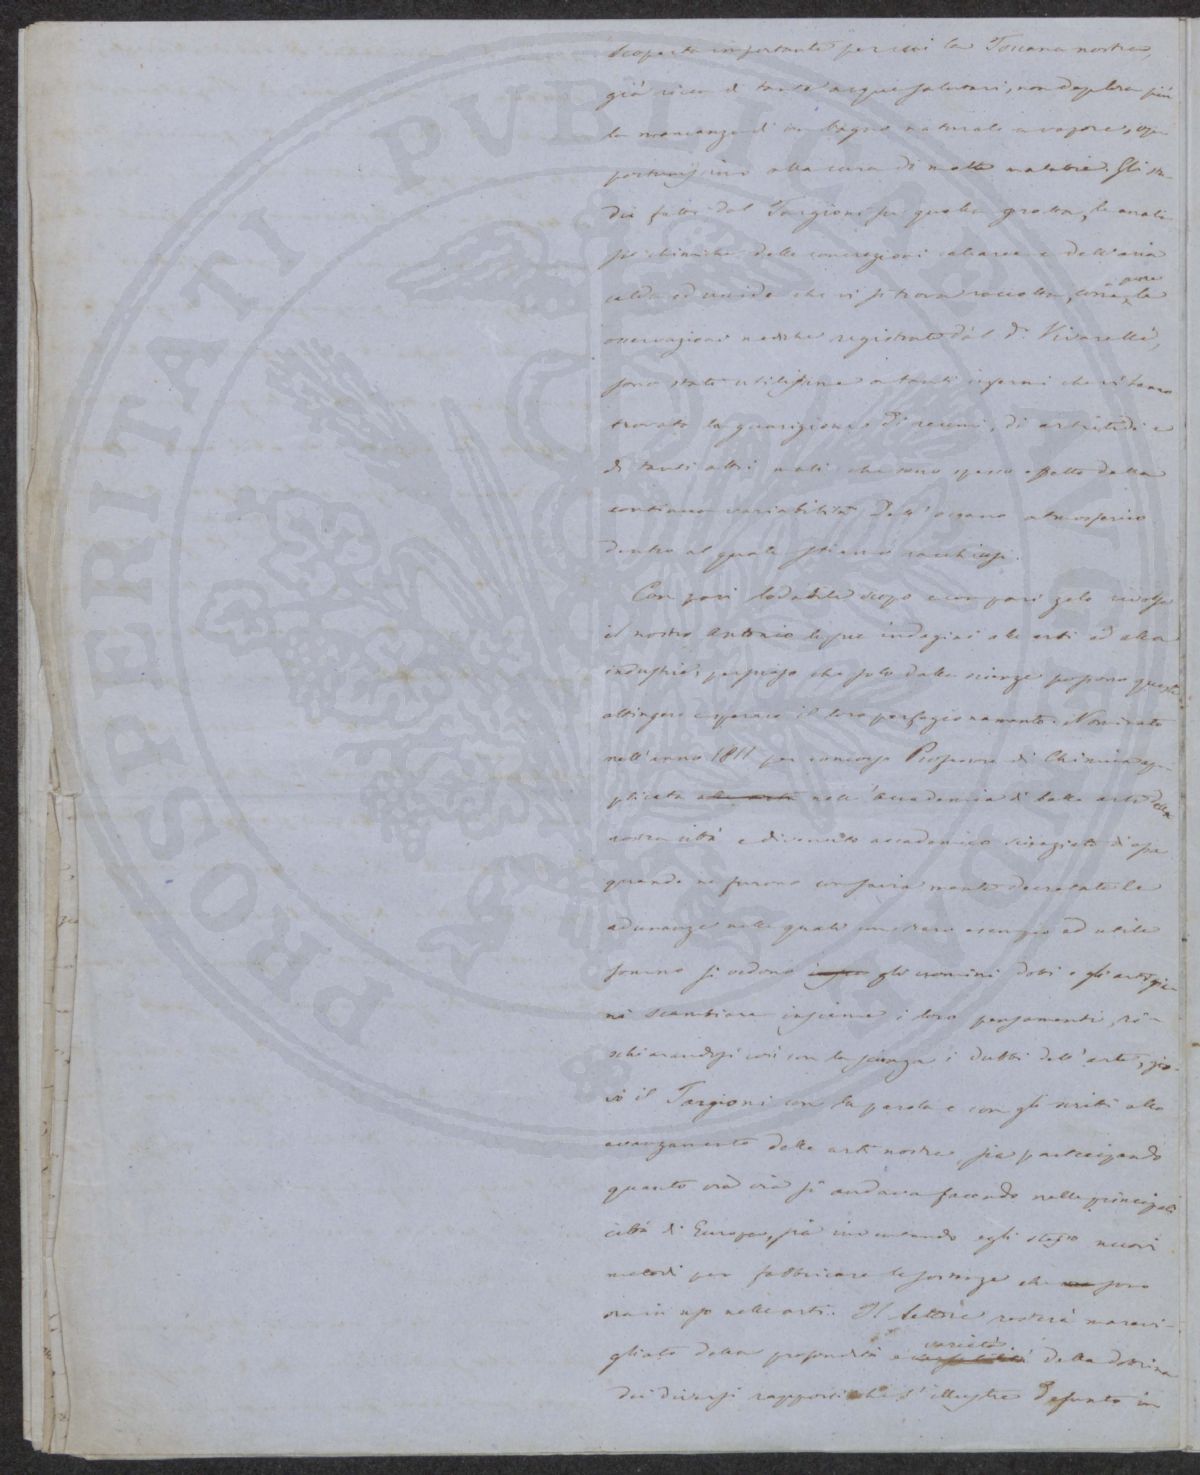 scoperta importante per cui la Toscana nostra,
già ricca di tante acque salutari, non deplora più
la mancanza di un bagno naturale a vapore, op-
portunissimo alla cura di molte malattie. Gli stu-
di fatti dal Targioni su quella grotta, le anali-
si chimiche delle concrezioni calcaree e dell'aria
calda ed umida che vi si trova raccolta, come pure le
osservazioni mediche registrate dal Dr. Vivarelli,
sono state utilissime a tanti infermi che vi hanno
trovato la guarigione di reumi, di artritidi e
di tanti altri mali che sono spesso effetto della
continua variabilità dell'oceano atmosferico
dentro al quale stiamo racchiusi.
Con pari lodabile scopo e con pari zelo rivolse
il nostro Antonio le sue indagini alle arti ed alla
industria, persuaso che solo dalle scienze possono queste
attingere e sperare il loro perfezionamento. Nominato
nell'anno 1811 per concorso Professore di Chimica ap-
plicata alle arti nell'Accademia di belle arti della
nostra città e divenuto accademico
quando ne furono con savia mente decretate le
adunanze nelle quali con raro esempio ed utile
sommo si vedono gli uomini dotti e gli artigia-
ni scambiare insieme i loro pensamenti, ri-
schiarandosi così con la scienza i dubbi dell'arte, gio-
vò il Targioni con la parola e con gli scritti allo
avanzamento delle arti nostre, sia partecipando
quanto via via si andava facendo nelle principali
città di Europa, sia inventando egli stesso nuovi
metodi per fabbricare le sostanze che sono
ora in uso nelle arti. Il lettore resterà maravi-
gliato della profondità e varietà della dottrina
dei diversi rapporti che l'illustre defunto in
PROSPERITATI PVBLICAE AVGENDAE